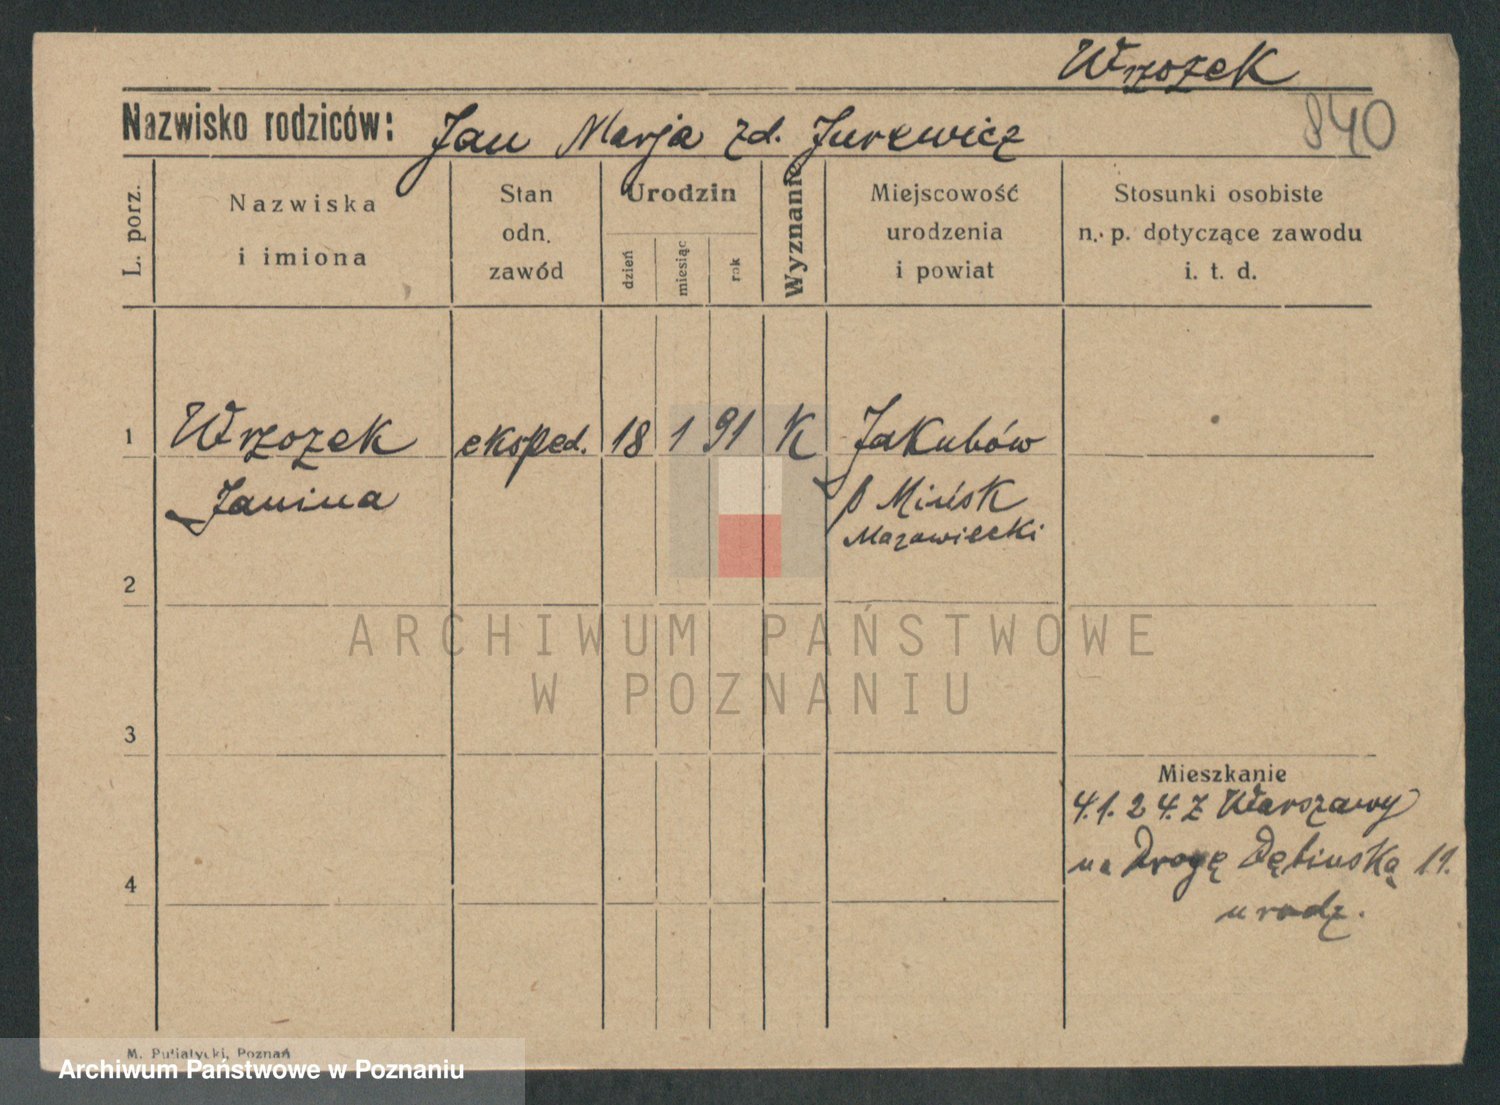 Wrzozek
840
Nazwisko rodziców: Jan Marja zd. Jurewicz
L. porz.
Nazwiska
i imiona
Stan
odn.
zawód
Urodzin
dzień
miesiąc
rok
Wyznanie
Miejscowość
urodzenia
i powiat
Stosunki osobiste
n. p. dotyczące zawodu
i. t. d.
1 Wrzozek eksped. 18 1 91 K Jakubów
Janina
p Mińsk
Mazowiecki
2
ARCHIWUM PAŃSTWOWE
W POZNANIU
3
Mieszkanie
4.1.24. z Warszawy
na Drogę Dębińską 11.
4
urodz.
M. Putiatycki, Poznań
Archiwum Państwowe w Poznaniu